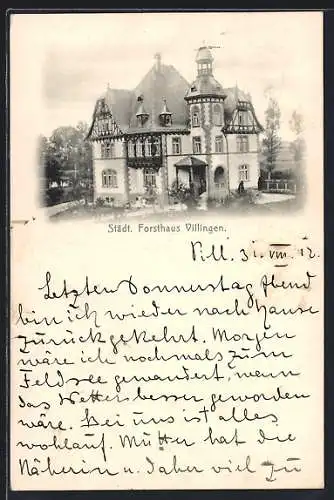 Städt. Forsthaus Villingen.
Vill. 31. VIII. 12.
Letzten Donnerstag Abend
bin ich wieder nach Hause
zurückgekehrt. Morgen
wäre ich nochmals zum
Feldsee gewandert, wenn
das Wetter besser geworden
wäre. Bei uns ist alles
wohlauf. Mutter hat die
Näherin u. daher viel zu